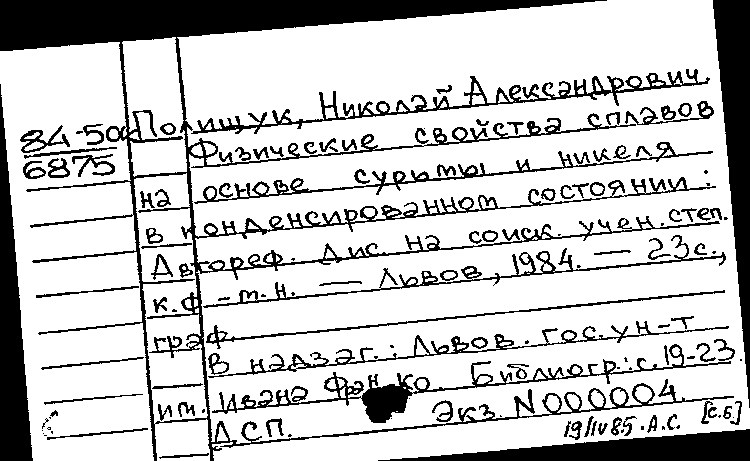 84-50a
6875
Полищук, Николай Александрович.
Физические свойства сплавов
на основе сурьмы и никеля
в конденсированном состоянии:
Автореф. дис. на соиск. учен. степ.
к.ф-м.н. — Львов, 1984. — 23с.,
граф.
В надзаг.: Львов. гос. ун-т
им. Ивана Франко. Библиогр.: с. 19-23.
Д.С.П. Экз. N000004.
19/IV 85. А.С. [с.б]